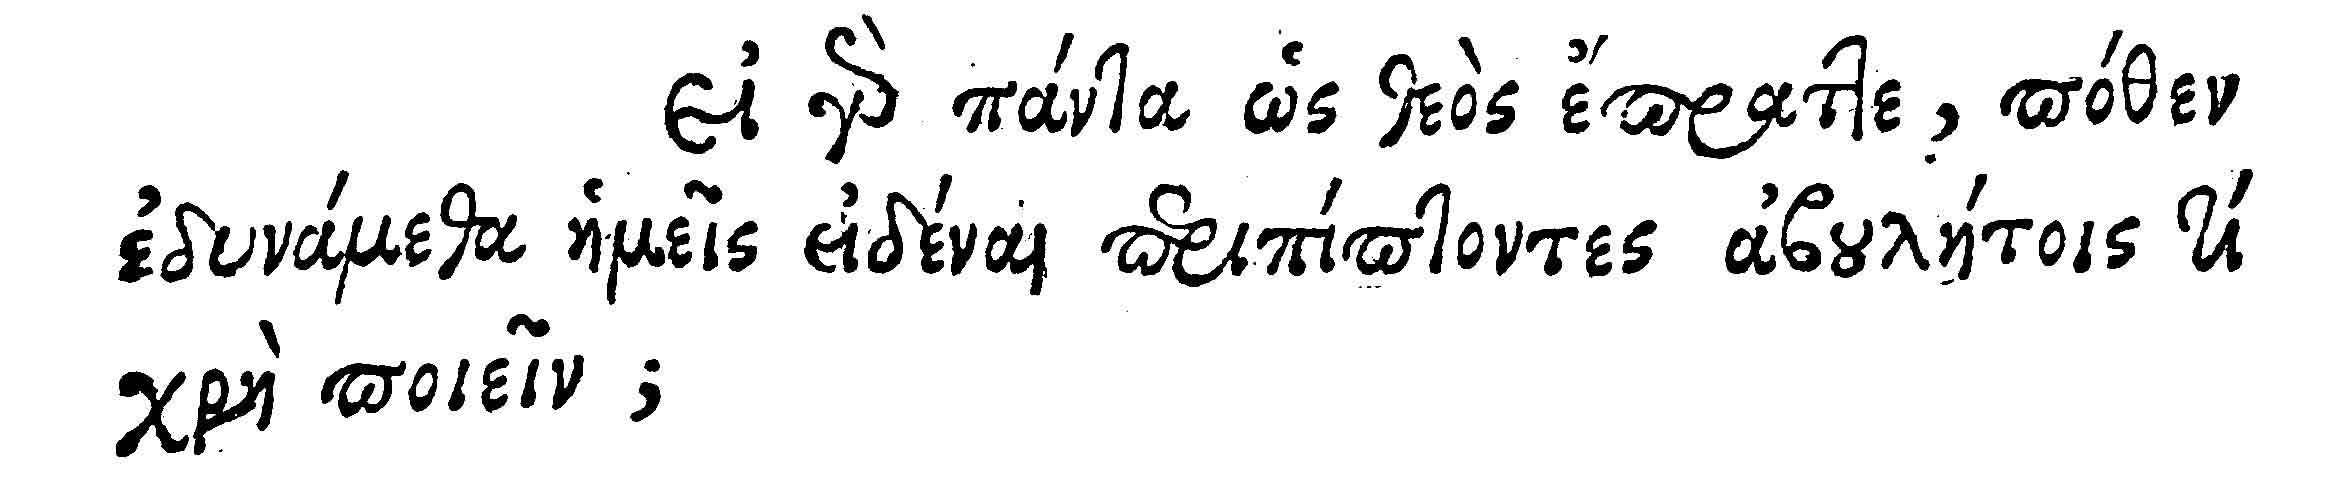 εἰ γὰρ πάντα ὡς θεὸς ἔπραττε, πόθεν
ἐδυνάμεθα ἡμεῖς εἰδέναι περιπίπτοντες ἀβουλήτοις τί
χρὴ ποιεῖν ;